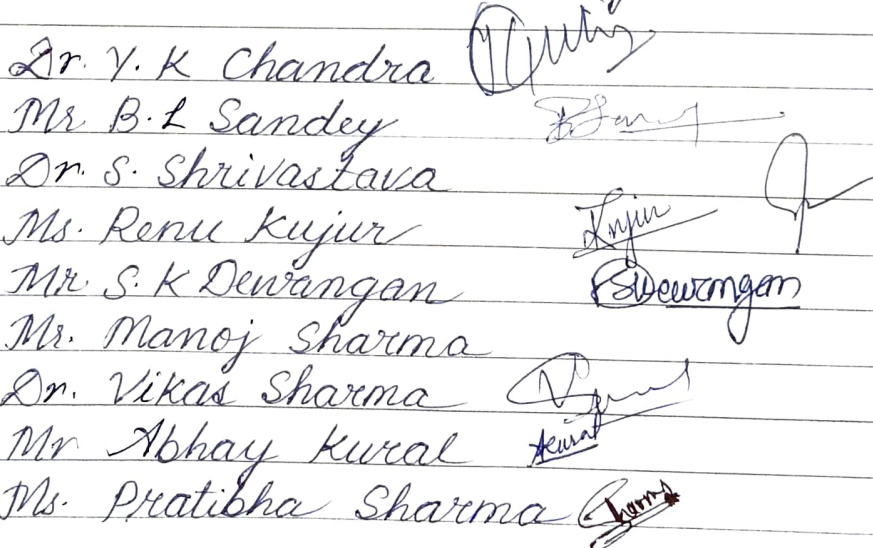 Dr. Y. K Chandra
Mr B. L Sandey
Dr. S. Shrivastava
Ms. Renu Kujur Kujur
Mr S. K Dewangan SDewangan
Mr. Manoj Sharma
Dr. Vikas Sharma
Mr Abhay Kural AKural
Ms. Pratibha Sharma Sharma